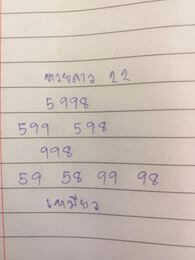 หวยลาว 22
5998
599 598
998
59 58 99 98
เหมียว